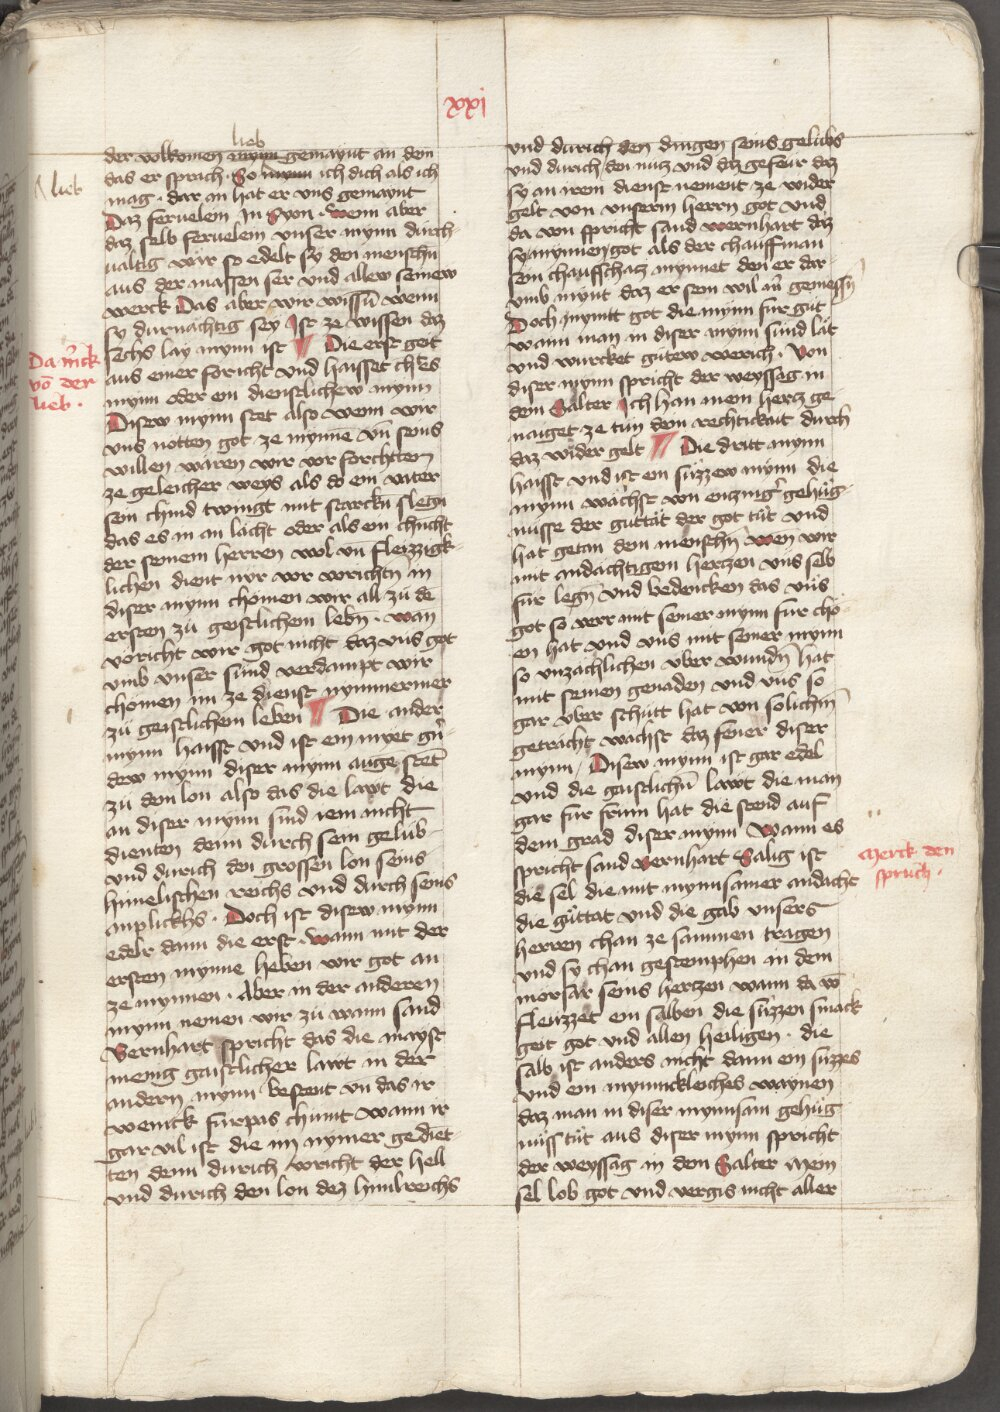 xxj
lieb
der volkomen mynn gemaynt an dem
das er sprach. So mynn ich dich als ich
lieb
mag. dar an hat er vns gemaynt
Daz feruelem In Syon. Wenn aber
daz selb feruelem vnser mynn durch-
valtig wir so edelt sy den menschn
aus der massen ser vnd allew seinew
werck Das aber wir wissn̄ wenn
sy durnächtig sey Ist ze wissen daz
sechs lay mynn ist ¶ Die erst geit
Da m̄ck
vō der
lieb.
aus einer foricht vnd haisset ch
mynn oder ein dienstlichew mynn
Disew mynn stet also wenn wir
vns notten got ze mynnē vn̄ seins
willen waren wir vor forchten
ze geleicher weys als do ein vater
sein chind twingt mit starckn slegn
das es in an lacht oder als ein chnecht
der seinem herren wol vn̄ fleizzigk-
lichen dient nvr vor vorichtn in
diser mynn chömen wir all zü de
ersten zü geistlichem lebn̄. wan
vöricht wir got nicht daz vns got
vmb vnser sünd verdampt wir
chömen im ze dienst nymmermer
zü geistlichem leben ¶ Die ander
mynn haisst vnd ist ein myet
dew mynn diser mynn auge stet
zü dem lon also das die lawt die
an diser mynn sind iem nicht
dienten denn durch sein gelüb-
vnd durich den grossen lon seins
himelischen reichs vnd durch seins
anplickhs. Doch ist disew mynn
edelr dann die erst. wann mit der
ersten mynne heben wir got an
ze mynnen. Aber in der anderen
mynn nemen wir zü wann sand
Bernhart spricht das die mayst
menig gaistlicher lawt in der
andern mynn bestent vn das ir
wenick fürpas chumt wann ir
gar vil ist die im nymer gediet-
ten denn durich vöricht der hell
vnd durich den lon dez himlreichs
vnd durich den dingen seins gelübs
vnd durich den nucz vnd daz gefeur daz
sy an irem dienst nement ze wider
gelt von vnserm herrn got vnd
da von spricht sand wernhart daz
sy mynnen got als der chauffman
sein chauffschacz mynnet den er dar-
vmb mynt daz er sein wil im gemessn
Doch mynnt got die mynn für güt
wann man in diser mynn sünd lät
vnd würcket gütew werich. Von
diser mynn spricht der weyssag in
dem Salter Ich han mein hercz ge-
naiget ze tün dein rechtickait durch
daz wider gelt ¶ Die dritt mynn
haisst vnd ist ein süzzew mynn die
mynn wächst von enczigr̄ gehüg-
nüsse der güttät der got tüt vnd
hat getan dem menschn wen wir
mit andachtigem herczen vns selb
für legn̄ vnd bedencken das vns
got so verr mit seiner mynn für chö-
en hat vnd vns mit seiner mynn
so vnzächlichen vber wundn̄ hat
mit seinen genaden vnd vns so
gar vber schütt hat von solichm̄
geträcht wachst daz feuer diser
mynn / Disew mynn ist gar edel
vnd die gaistlichn̄ lawt die man
gar für frum hat die stend auf
dem grad diser mynn Wann es
spricht sand Bernhart Salig ist
Merck den
spruch.
die sel die mit mynnsamer andacht
die güttat vnd die gab vnsers
herren chan ze sammen tragen
vnd sy chan gestemphen in dem
morsar seins herczen wann da vō
fleuzzet ein salben die süzzen smack
geit got vnd allen heiligen. die
salb ist anders nicht dann ein süzzes
vnd ein mynnickleiches waynen
daz man in diser mynnsam gehüg-
nüss tüt aus diser mynn spricht
der weyssag in dem Salter Mein
sel lob got vnd vergis nicht aller